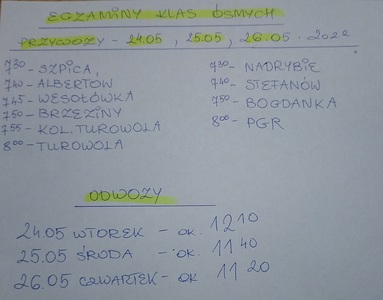 EGZAMINY KLAS ÓSMYCH
PRZYWOZY - 24.05 , 25.05 , 26.05. 2022
7³⁰ - SZPICA,
7⁴⁰ - ALBERTÓW
7⁴⁵ - WESOŁÓWKA
7⁵⁰ - BRZEZINY
7⁵⁵ - KOL. TUROWOLA
8⁰⁰ - TUROWOLA
7³⁰ - NADRYBIE
7⁴⁰ - STEFANÓW
7⁵⁰ - BOGDANKA
8⁰⁰ - PGR
ODWOZY
24.05 WTOREK - OK. 12¹⁰
25.05 ŚRODA - OK. 11⁴⁰
26.05 CZWARTEK - OK 11²⁰